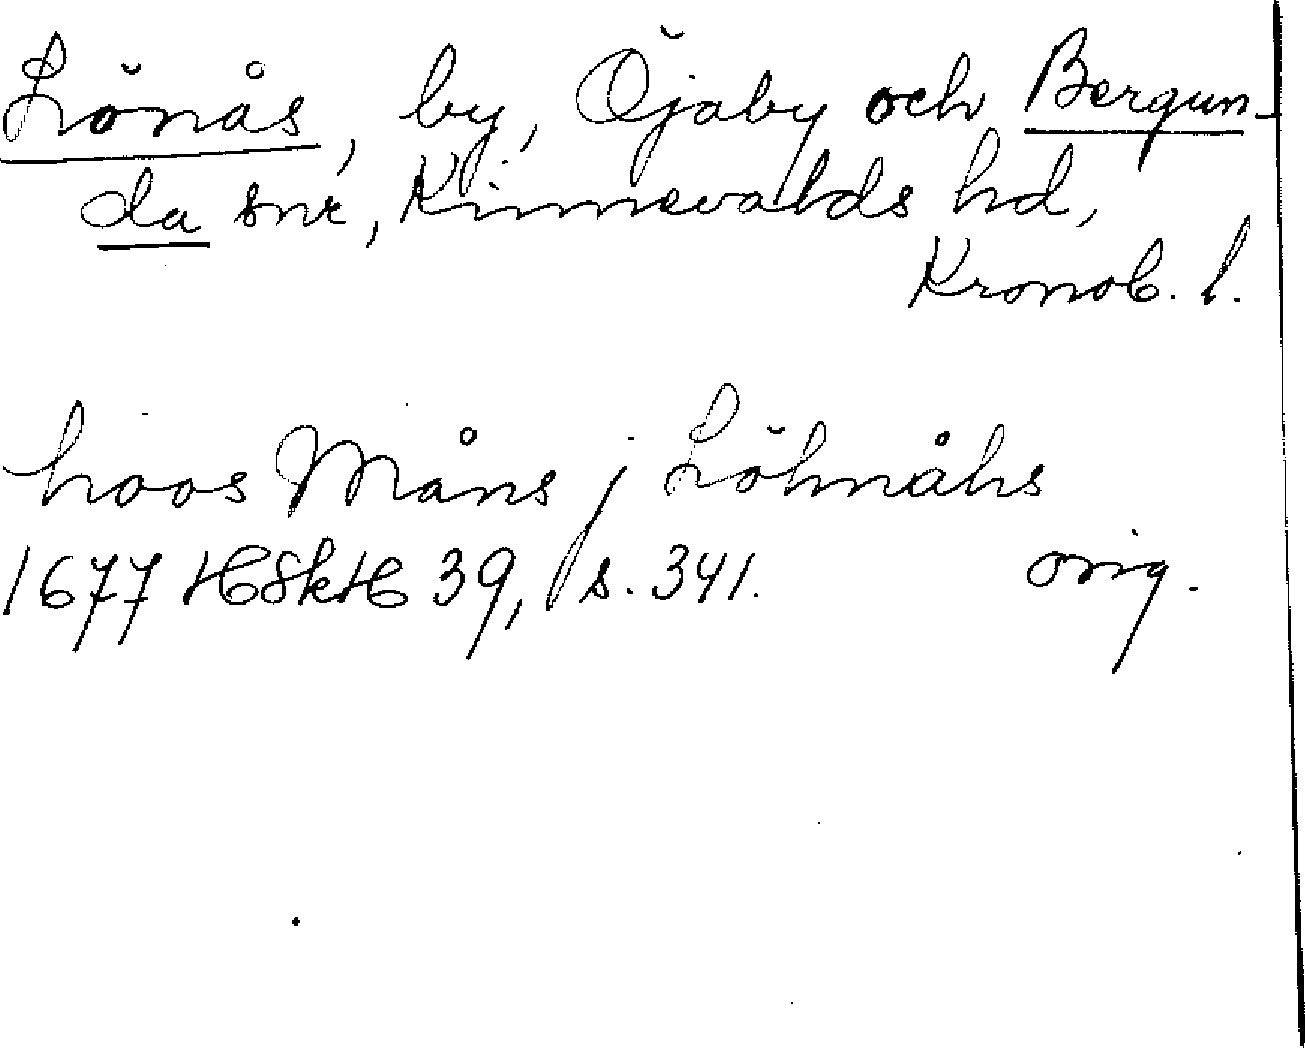 Lönås, by, Öjaby och Bergun-
da snr, Kinnevalds hd,
Kronob. l.
hoos Måns j Löhnåhs
1677 HSkH 39, s. 341. orig.